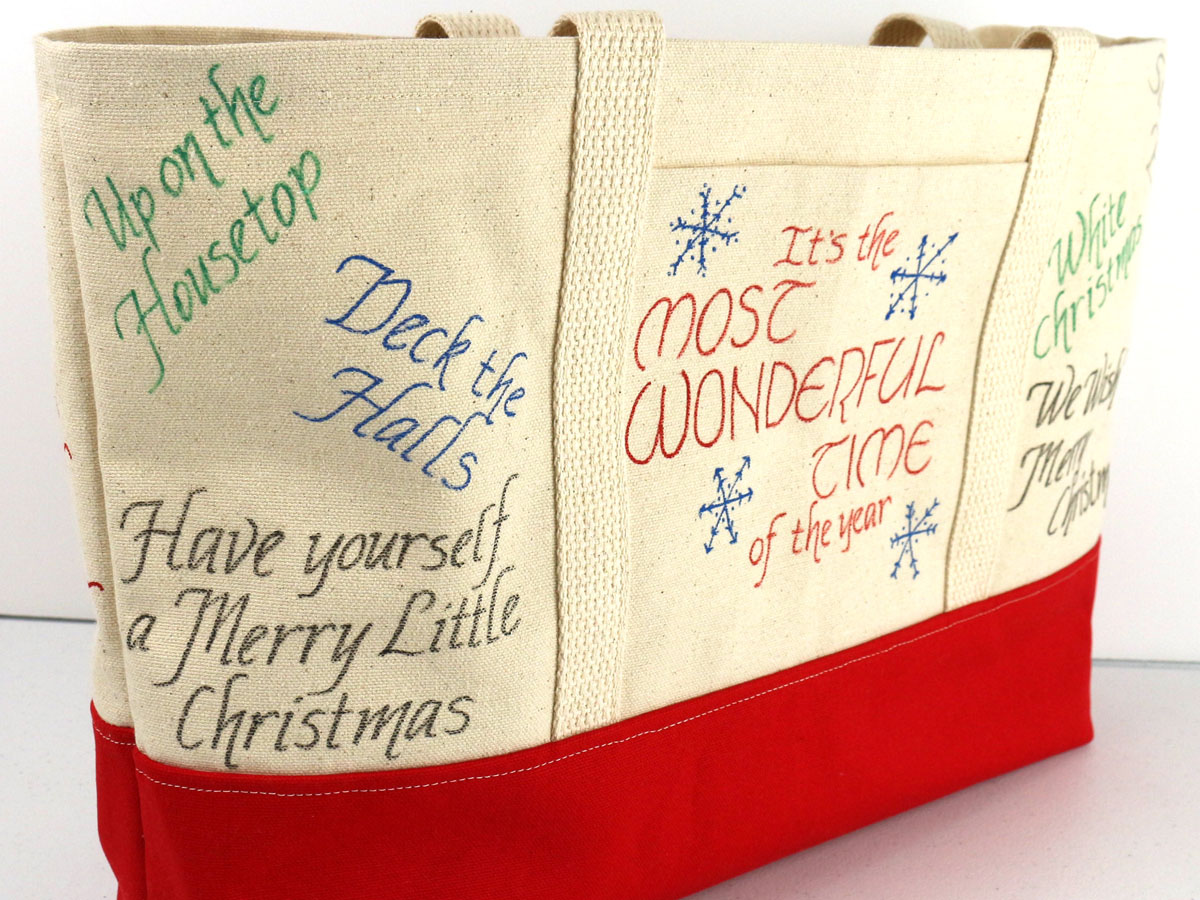 Up on the
Housetop
Deck the
Halls
Have yourself
a Merry Little
Christmas
It's the
MOST
WONDERFUL
TIME
of the year
White
Christmas
We Wish
Merry